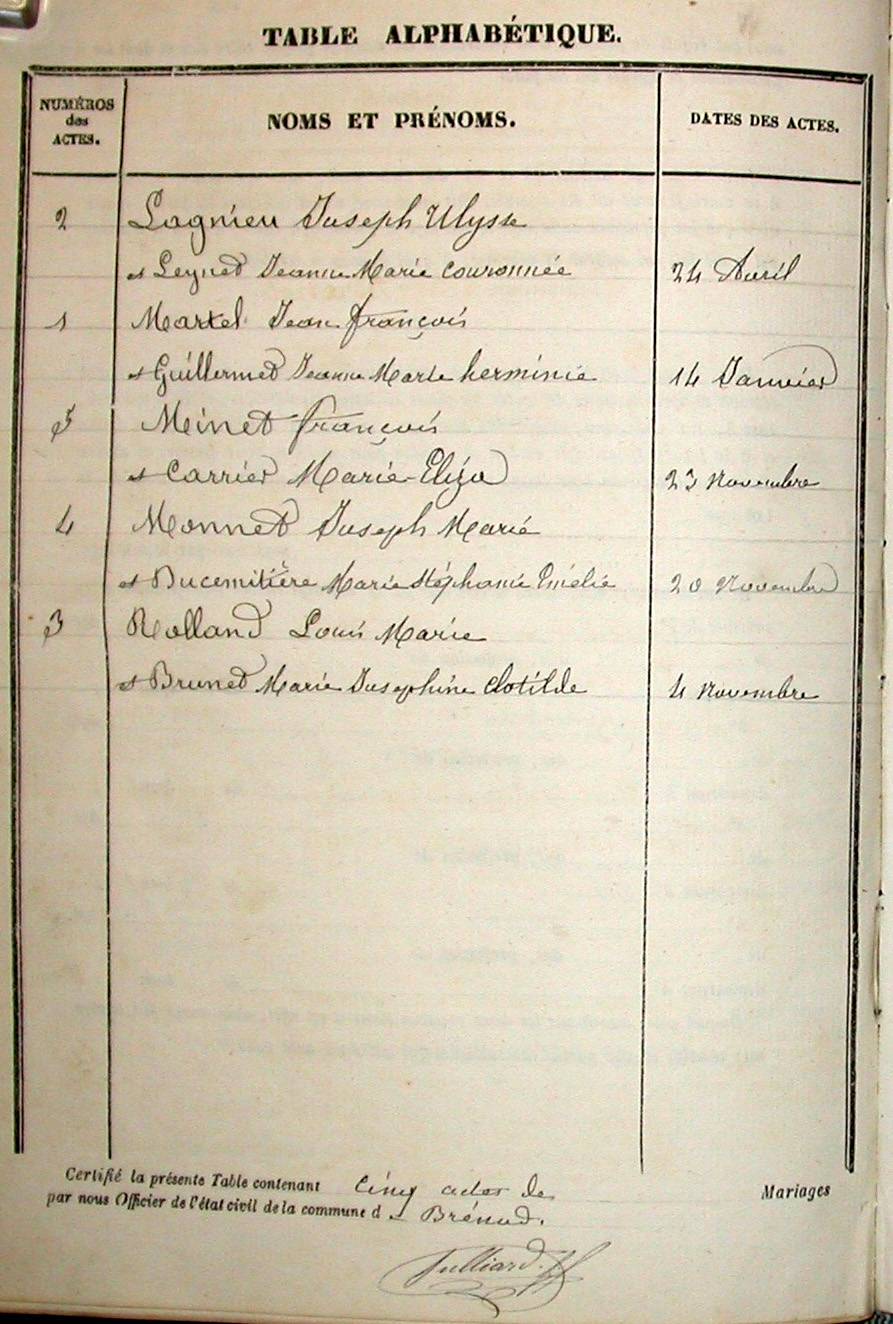 TABLE ALPHABÉTIQUE.
NUMÉROS des ACTES.
NOMS ET PRÉNOMS.
DATES DES ACTES.
2 Lagnieu Joseph Ulysse
et Peynet Jeanne Marie couronnée 24 Avril
1 Martel Jean françois
et Guillermet Jeanne Marie herminie 14 Janvier
5 Meinet françois
et Carrier Marie Eliza 23 Novembre
4 Monnet Joseph Marie
et Ducemitière Marie Stéphanie Emélie 20 Novembre
3 Rolland Louis Marie
et Brunet Marie Josephine Clotilde 4 Novembre
Certifié la présente Table contenant Cinq actes de Mariages
par nous Officier de l'état civil de la commune d e Brénod.
Julliard